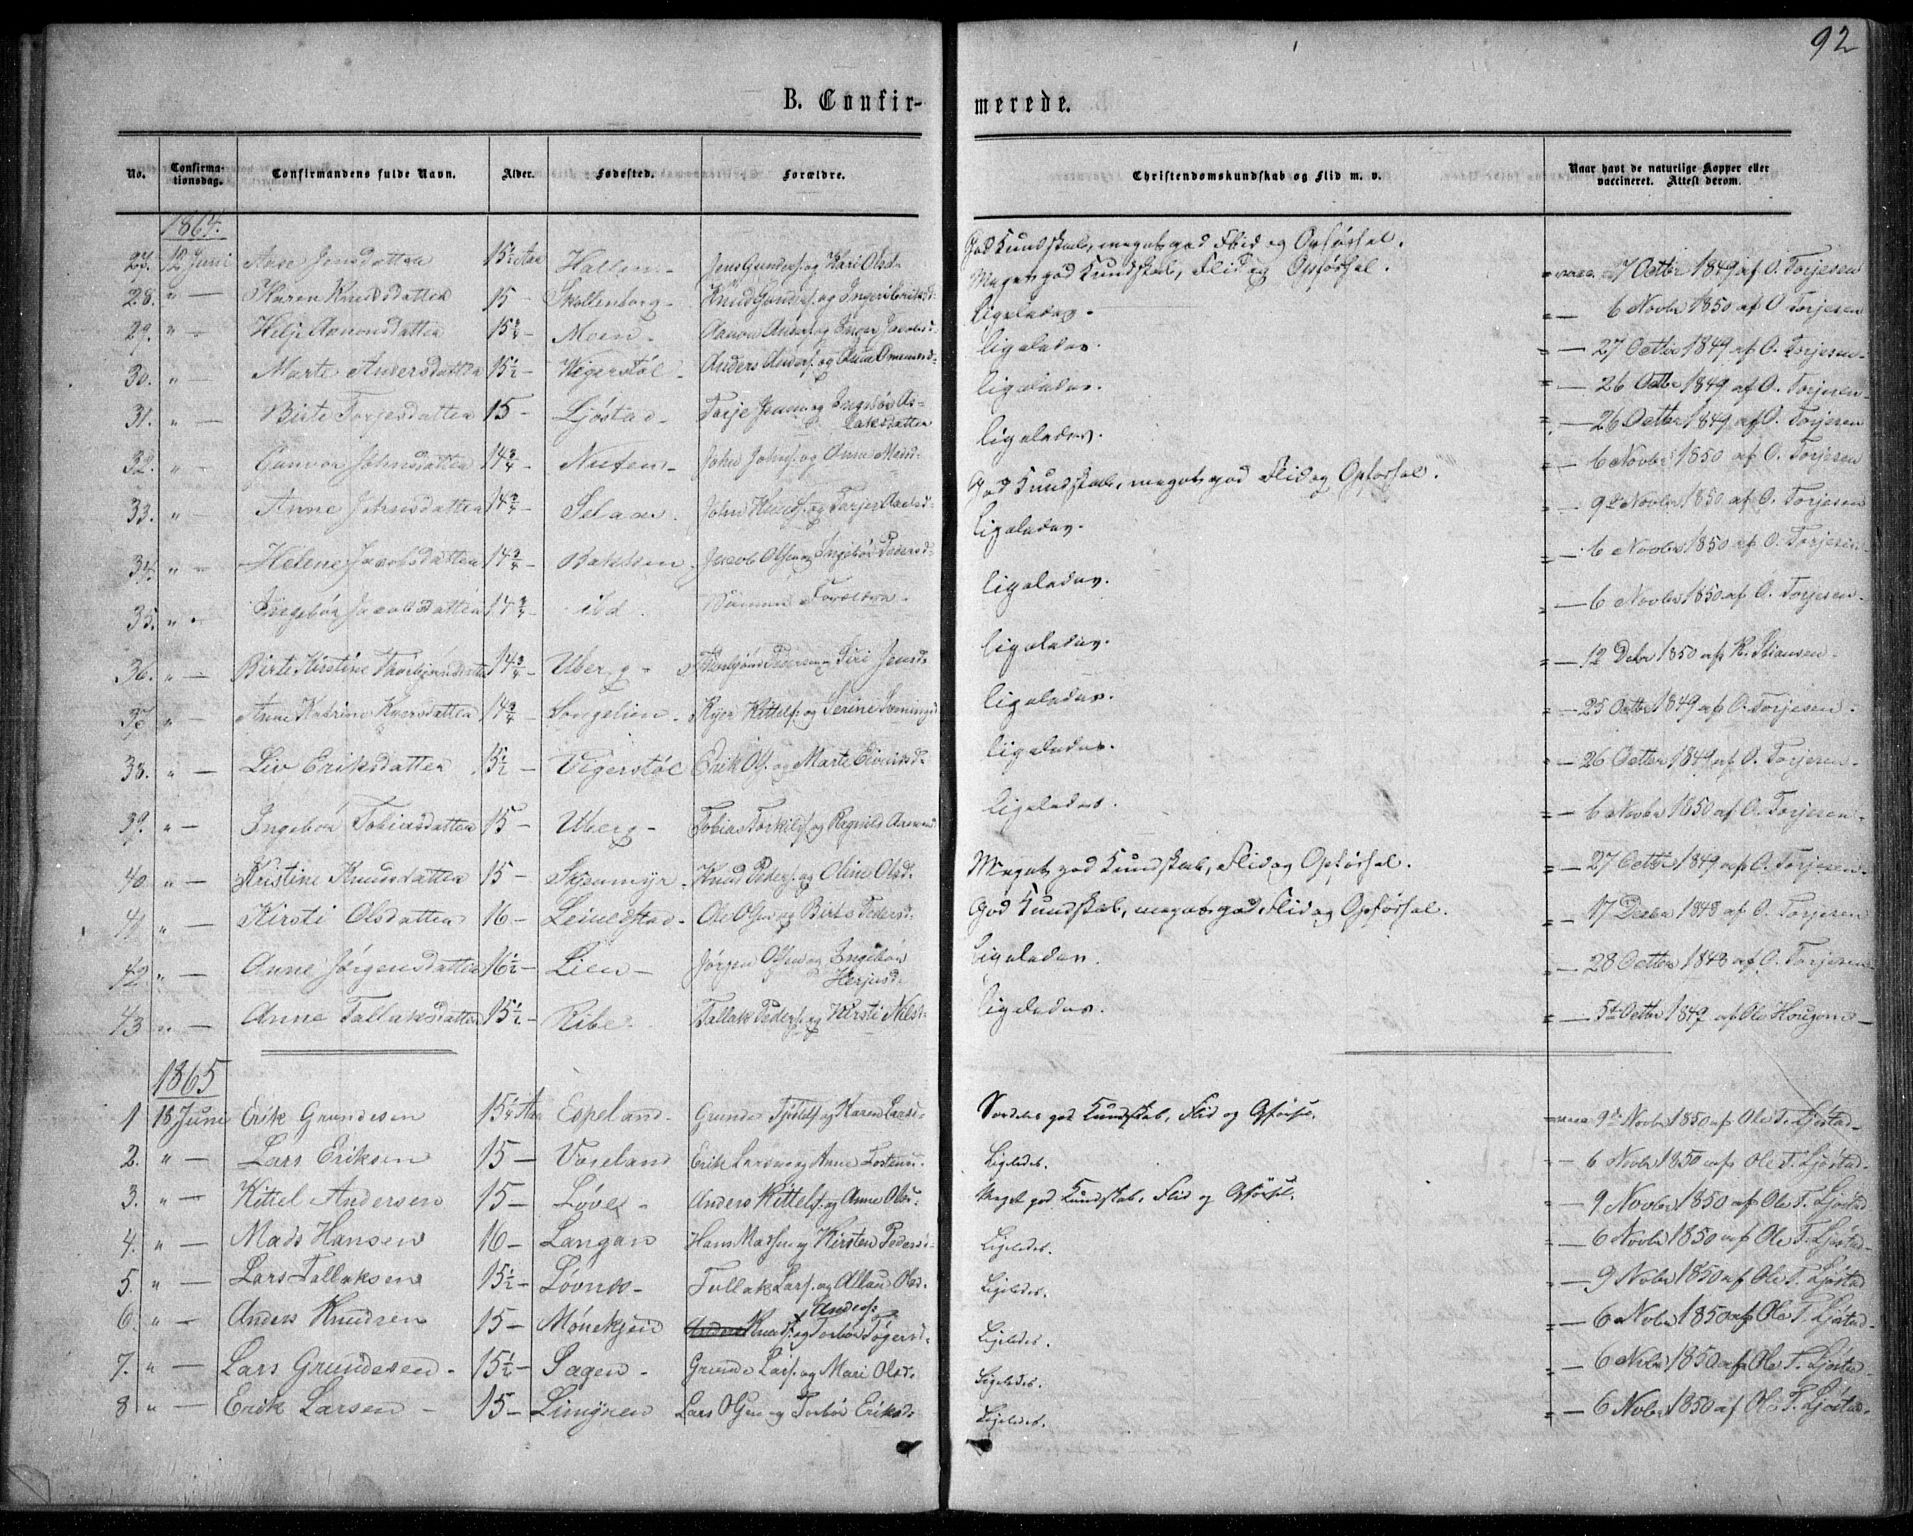 92
B. Confirmerede.
No. Confirmationsdag. Confirmandens fulde Navn. Alder. Fødested. Forældre. Christendomskundskab og Flid m. v. Naar havt de naturlige Kopper eller vaccineret. Attest derom.
1864.
27. 12 Juni Aase Jensdatter 15½ Aar Hallem - Jens Gunders. og Kari Olsd. God Kundskab, meget god Flid og Opførsel. vacc. 27 Octbr 1849 af O. Torjesen
28. " — Karen Knudsdatter 15 - Skoltenborg - Knud Gunders. og Meget god Kundskab, Flid og Opførsel. = — 6 Novbr 1850 af O. Torjesen
29. " — 15¾ - Moen - Ligeledes. = — 27 Octbr 1849 af O. Torjesen
30. " — Marte Andersdatter 15½ Vigerstøl - Anders Anders. og Ligeledes. = — 26 Octbr 1849 af O. Torjesen
31. " — Birte Torjesdatter 15 - Ljøstad - Torje Jensen og Ingebor Aslaksdatter Ligeledes. = — 26 Octbr 1849 af O. Torjesen
32. " — Gunvor Johnsdatter 14¾ - John Johns. og Ligeledes. = — 6 Novbr 1850 af O. Torjesen
33. " — Anne Johnsdatter 14¾ - Selaas. John Knuds. og God Kundskab, meget god Flid og Opførsel. = — 9 Novbr 1850 af O. Torjesen
34. " — Helene Jacobsdatter 14¾ - Bakken. Jacob Olsen og Ingebor Pedersd. Ligeledes. = — 6 Novbr 1850 af O. Torjesen
35. " — Ingebor Jacobsdatter 14¾ - ibd. Samme Forældre. Ligeledes. = — 6 Novbr 1850 af O. Torjesen
36. " — Birte Kirstine Thorbjørnsdatter 14¾ - Uberg - Thorbjørn Pedersen og Siri Jensd. Ligeledes. = — 12 Debr 1850 af
37. " — Anne Katrine 14¾ - Songelien. Kittels. og Serine Ligeledes. = — 25 Octbr 1849 af O. Torjesen
38. " — Liv Eriksdatter 15½ - Vigerstøl Erik Ols. og Marte Eivindsd. Ligeledes. = — 26 Octbr 1849 af O. Torjesen
39. " — Ingebor Tobiasdatter 15 - Uberg - Tobias Torkilds. og Ragnild Ligeledes. = — 6 Novbr 1850 af O. Torjesen
40. " — Kristine Knudsdatter 15 - Skjeumyr. Knud Peders. og Oline Olsd. Meget god Kundskab, Flid og Opførsel. = — 27 Octbr 1849 af O. Torjesen
41. " — Kirsti Olsdatter 16 - Leinestad. Ole Olsen og Birte Pedersd. God Kundskab, meget god Flid og Opførsel. = — 17 Debr 1848 af O. Torjesen
42. " — Anne Jørgensdatter 16½ - Lien - Jørgen Olsen og Ingebor Herjusd. Ligeledes. = — 28 Octbr 1848 af O. Torjesen
43. " — Anne Tallaksdatter 15½ - Ribe. Tallak Peders. og Kirsti Nilsd. Ligeledes. = — 5te Octbr 1849 af Ole Hougom
1865
1 18 Juni Erik Grundesen 15¼ Aar Espeland. Grunde og Karen Larsd. Særdeles god Kundskab, Flid og Opførsel. vacc. 9de Novbr 1850 af Ole T. Ljøstad
2. " — Lars Eriksen 15 - Voreland Erik Larsen og Anne Ligeledes. = — 6 Novbr 1850 af Ole T. Ljøstad
3. " — Kittel Andersen 15 - Løvel - Anders Kittels. og Anne Olsd. Meget god Kundskab, Flid og Opførsel. = — 9 Novbr 1850 af Ole T. Ljøstad
4. " — Mads Hansen 16 - Langan Hans Madsen og Kirsten Pedersd. Ligeledes. = — 6 Novbr 1850 af Ole T. Ljøstad
5. " — Lars Tallaksen 15½ - Løvnes - Tallak Lars. og Olsd. Ligeledes. = — 9 Novbr 1850 af Ole T. Ljøstad
6. " — Anders Knudsen 15 - Mønekjen Knud Anders. og Torbor Ligeledes. = — 6 Novbr 1850 af Ole T. Ljøstad
7. " — Lars Grundesen - 15½ - Sagen - Grunde Lars. og Mari Olsd. Ligeledes. = — 6 Novbr 1850 af Ole T. Ljøstad
8 " — Erik Larsen - 15 - Limyren Lars Olsen og Torbor Eriksd. Ligeledes. = — 6 Novbr 1850 af Ole T. Ljøstad